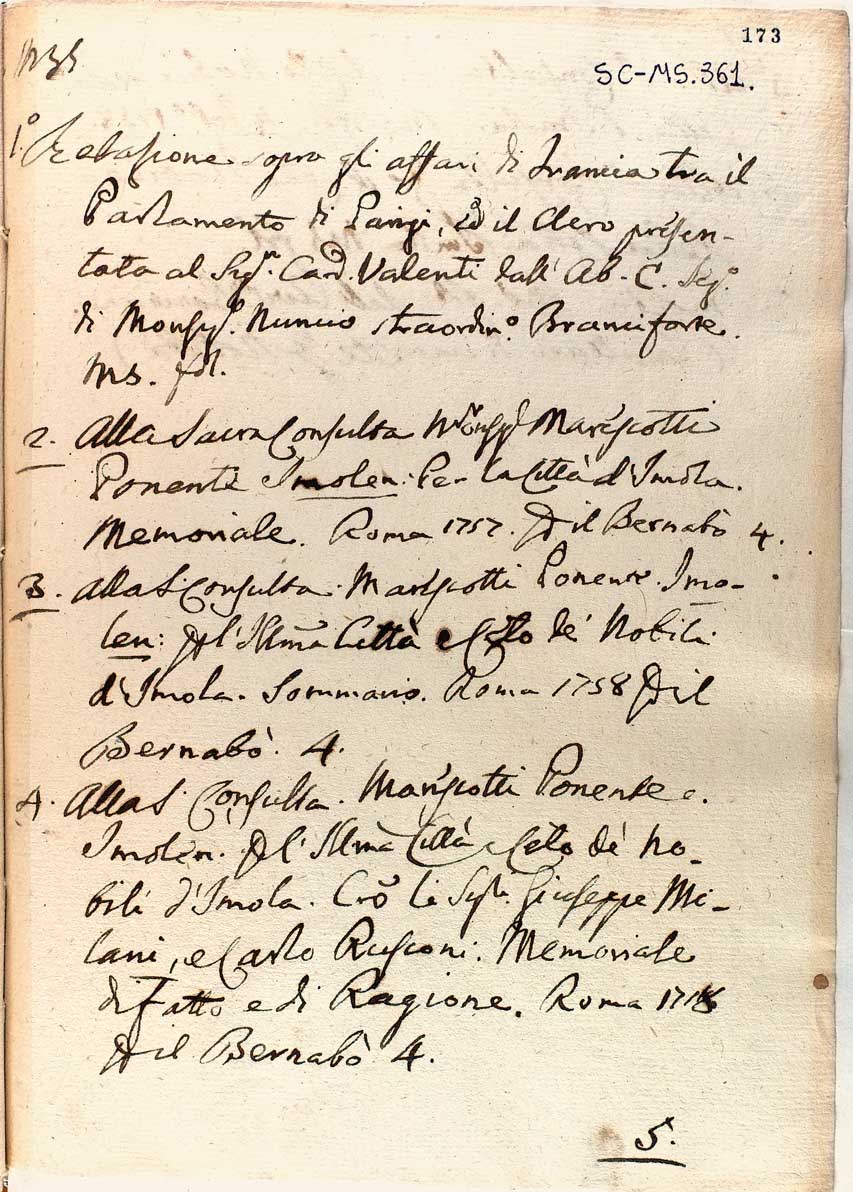 173
SC-MS.361.
1.º Relasione sopra gli affari di Francia tra il
Parlamento di Parigi, ed il Clero presen-
tata al Sigr. Card. Valenti dall' Ab. C. Segº.
di Monsigr. Nuncio straordinº. Branciforte.
Ms. fol.
2. Alla Sacra Consulta Monsigr Mariscotti
Ponente Imolen: Per la Città d'Imola.
Memoriale. Roma 1757. Per il Bernabò 4.
3. Alla S. Consulta. Mariscotti Ponente. Imo-
len: Per l'Illma Città e Ceto de' Nobili
d'Imola. Sommario. Roma 1758 Per il
Bernabò. 4.
4. Alla S. Consulta. Mariscotti Ponente.
Imolen. Per l'Illma Città e Ceto de' No-
bili d'Imola. Crō li Sigri. Giuseppe Mi-
lani, e Carlo Rusconi. Memoriale
di Fatto e di Ragione. Roma
Per il Bernabò 4.
5.